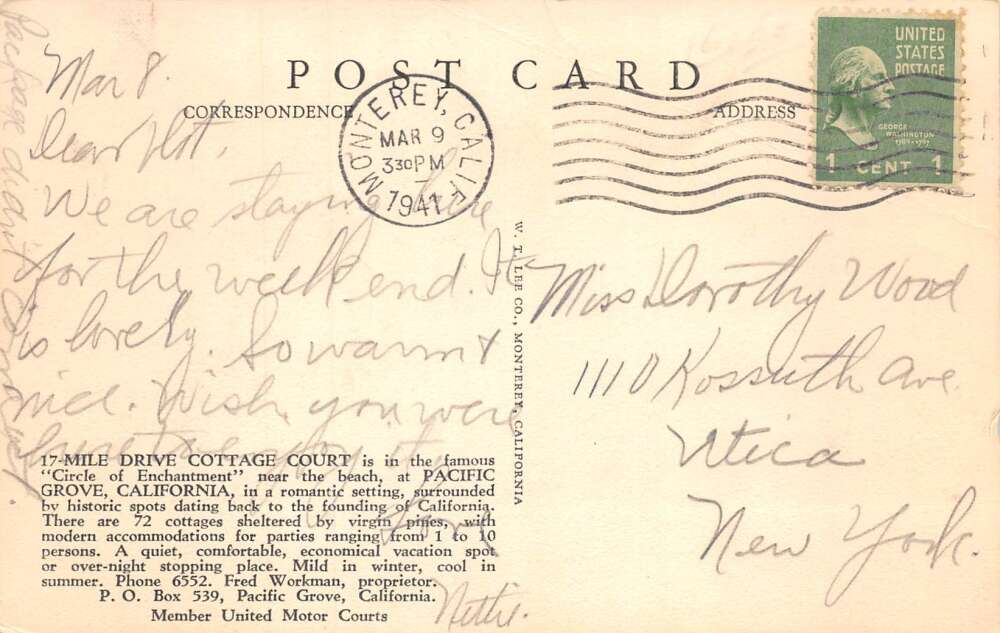 POST CARD
CORRESPONDENCE
ADDRESS
MONTEREY, CALIF
MAR 9
3 30 PM
1941
UNITED
STATES
POSTAGE
GEORGE
WASHINGTON
1789-1797
1 CENT 1
Mar 8.
Dear Dot,
We are staying here
for the week end. It
is lovely. So warm &
nice. Wish you were
here to enjoy it.
Love
Nettie.
Package didn't come yet.
Miss Dorothy Wood
1110 Kossuth Ave.
Utica
New York.
W. T. LEE CO., MONTEREY, CALIFORNIA
17-MILE DRIVE COTTAGE COURT is in the famous
"Circle of Enchantment" near the beach, at PACIFIC
GROVE, CALIFORNIA, in a romantic setting, surrounded
by historic spots dating back to the founding of California.
There are 72 cottages sheltered by virgin pines, with
modern accommodations for parties ranging from 1 to 10
persons. A quiet, comfortable, economical vacation spot
or over-night stopping place. Mild in winter, cool in
summer. Phone 6552. Fred Workman, proprietor.
P. O. Box 539, Pacific Grove, California.
Member United Motor Courts